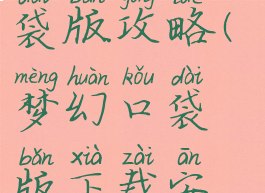 袋版攻略(
mèng huàn kǒu dài
梦幻口袋
bǎn xià zài ān
版下载安